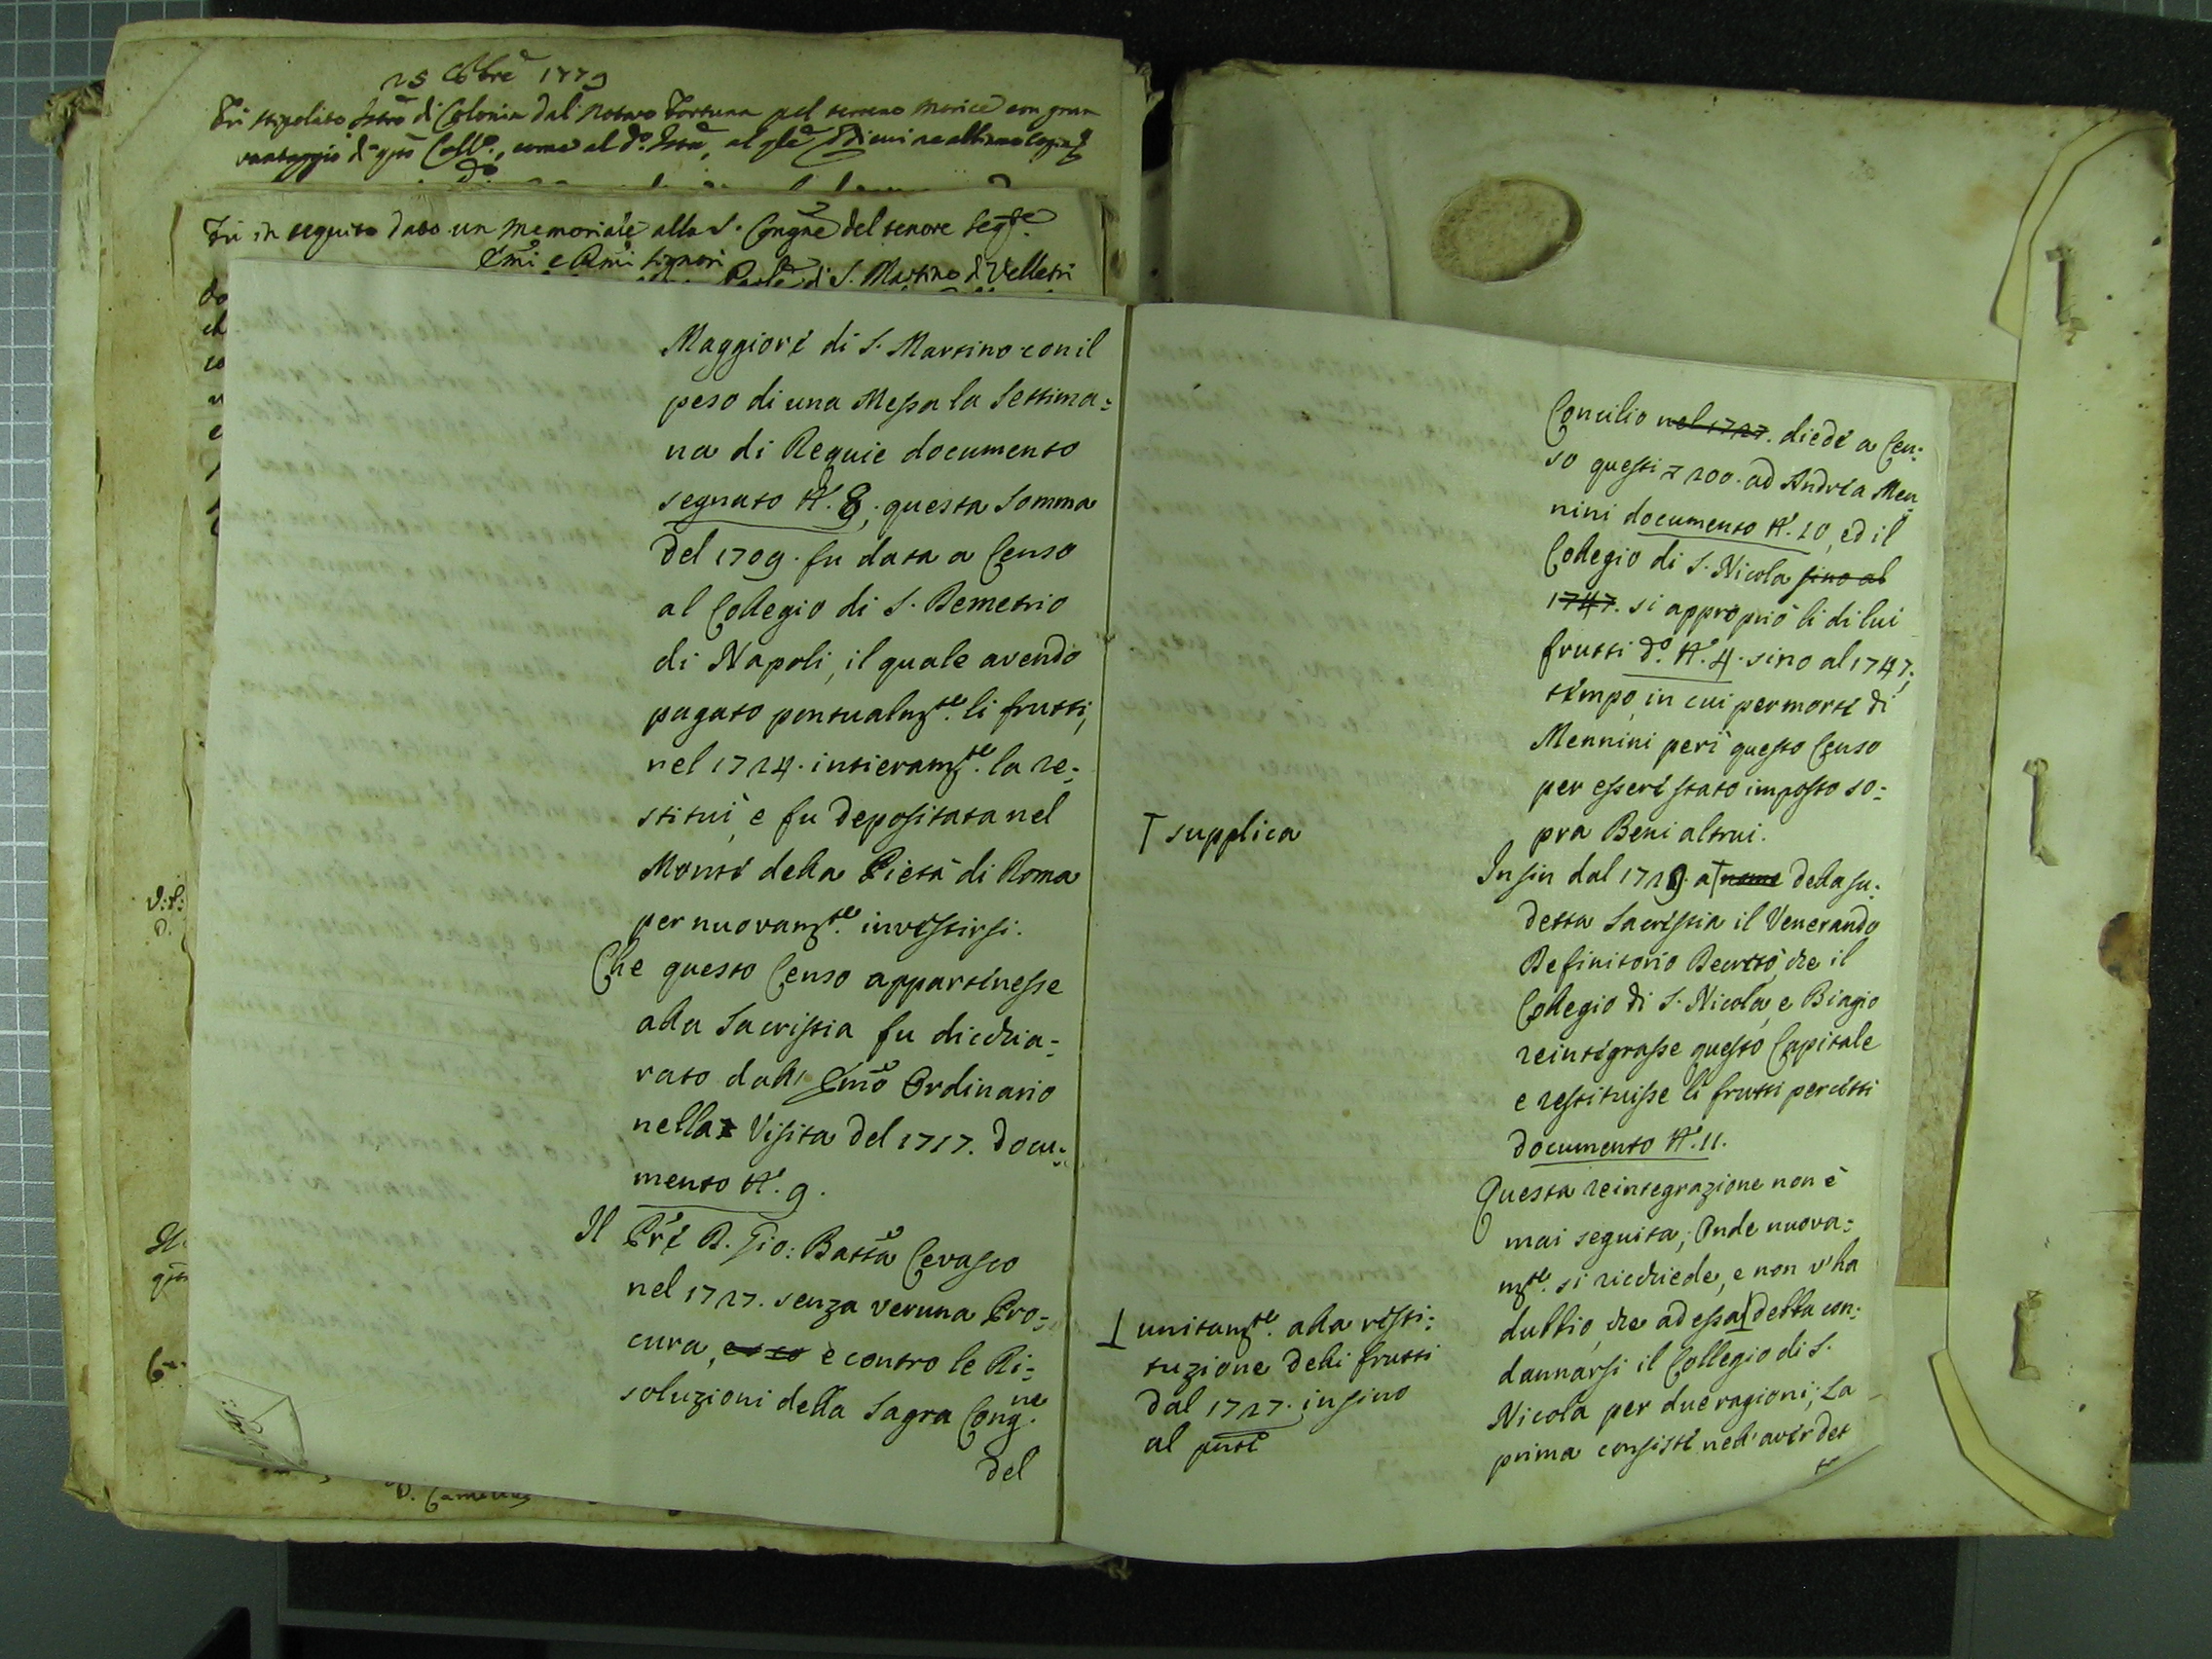 25 Obre 1779
Fu stipolato Istro di Colonia dal Notaro Fortuna pel terreno Morice con gran
vantaggio di qsto Collo., come al do. Istro, al qle
Fu in seguito dato un Memoriale alla S. Congne del tenore segte.
Emi e Rmi Signori
di S. Martino di Velletri
Maggiore di S. Martino con il
peso di una Messa la Settima=
na di Requie documento
segnato N. 8; questa Somma
del 1709. fu data a Censo
al Collegio di S. Demetrio
di Napoli, il quale avendo
pagato pontualmte. li frutti,
nel 1724. intieramte. la re=
stituì, e fu depositata nel
Monte della Pietà di Roma
per nuovamte. investirsi.
Che questo Censo appartenesse
alla Sacristia fu dichia=
rato dall' Emo Ordinario
nella Visita del 1717. docu=
mento N. 9.
Il Pre D. Gio: Batta Cevasco
nel 1727. senza veruna Pro=
cura, e contro le Ri=
soluzioni della Sagra Congne.
del
Concilio nel 1727. diede a Cen=
so questi 200. ad Andrea Men
nini documento N. 10, ed il
Collegio di S. Nicola sino al
1747. si appropriò li di lui
frutti do. N. 4. sino al 1747;
tempo, in cui per morte di
Mennini perì questo Censo
per essere stato imposto so=
pra Beni altrui.
T supplica
Insin dal 1729. a T nome della su=
detta Sacristia il Venerando
Definitorio Decretò, che il
Collegio di S. Nicola, e Biagio
reintegrasse questo Capitale
e restituisse li frutti percetti
documento N. 11.
Questa reintegrazione non è
mai seguita; Onde nuova=
mte. si richiede, e non v'ha
dubbio, che ad essa ⊥ debba con=
dannarsi il Collegio di S.
Nicola per due ragioni; La
prima consiste nell' aver det
to
⊥ unitamte. alla resti=
tuzione delli frutti
dal 1727. insino
al pnte